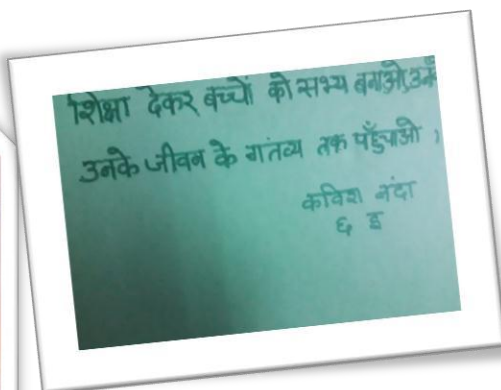 शिक्षा देकर बच्चों को सभ्य बनाओ,उन्हें
उनके जीवन के गंतव्य तक पहुँचाओ ।
कविश नंदा
६ इ